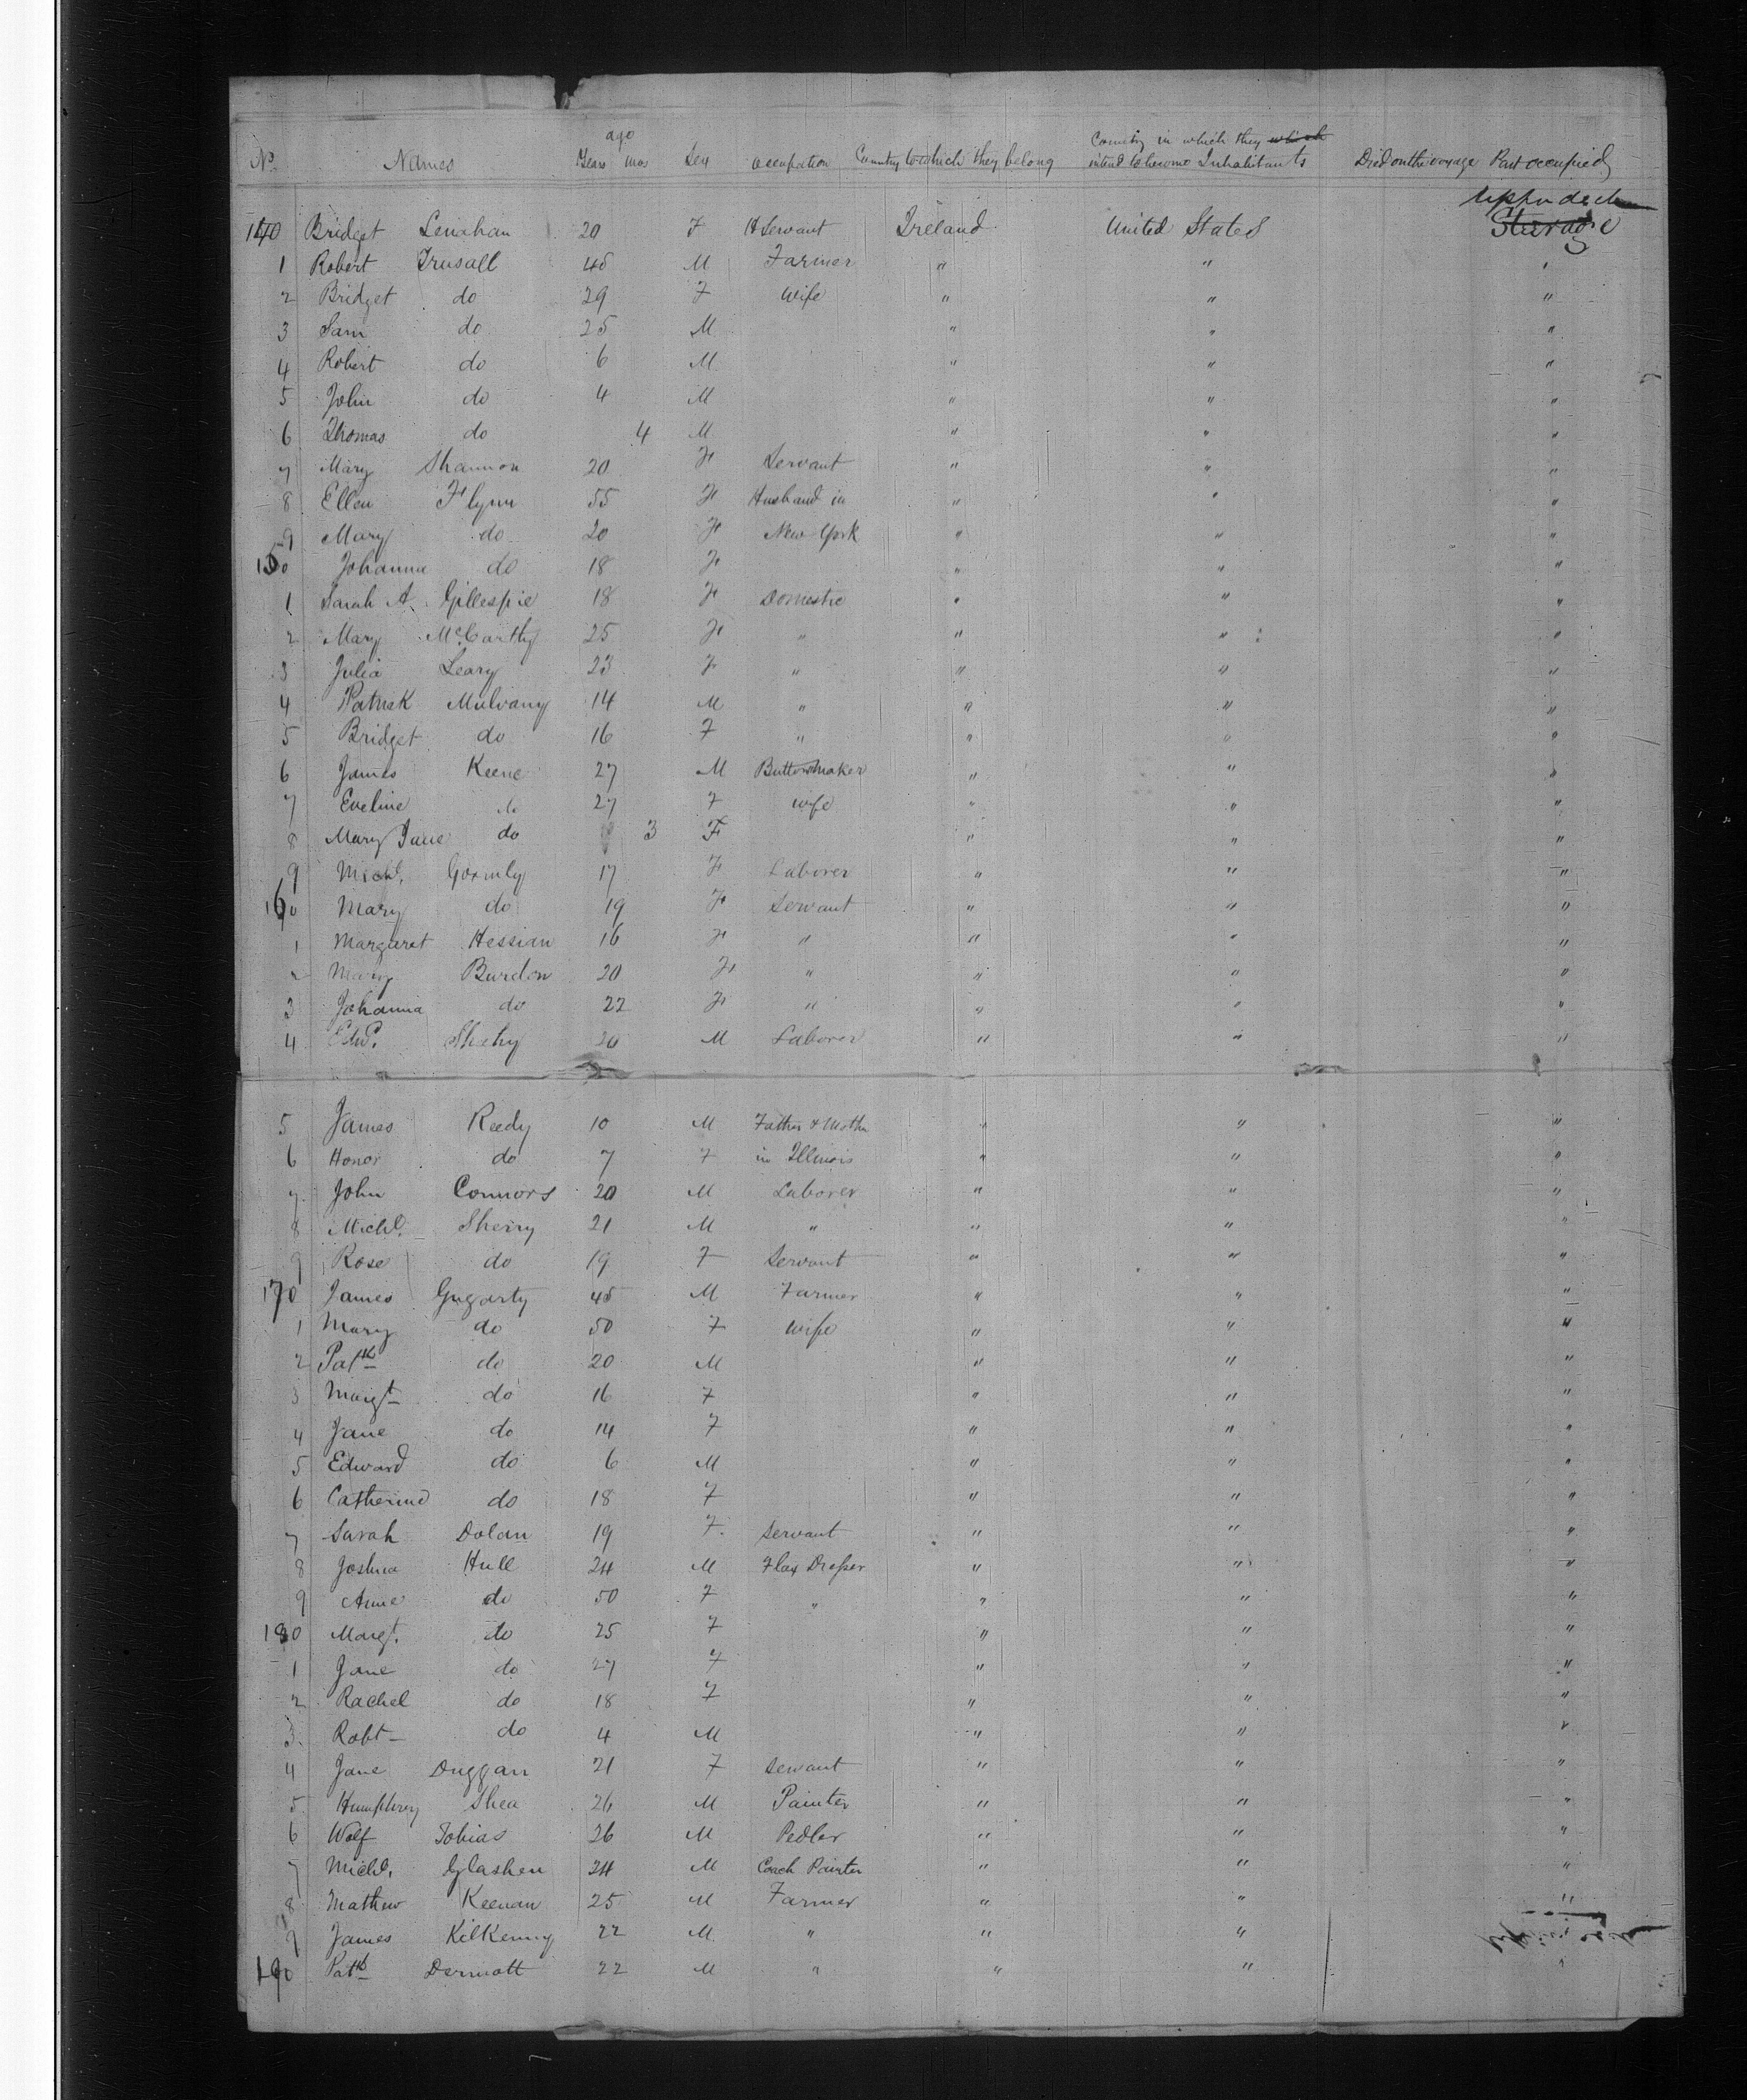 No. Names age Years mos Sex occupation Country to which they belong Country in which they which intend to become Inhabitants Died on the voyage Part occupied
Upper deck
140 Bridget Lenahan 20 F H Servant Ireland United States Steerage
1 Robert Trusall 45 M Farmer " " "
2 Bridget do 29 F Wife " " "
3 Sam do 25 M " " "
4 Robert do 6 M " " "
5 John do 4 M " " "
6 Thomas do 4 M " " "
7 Mary Shannon 20 F Servant " " "
8 Ellen Flynn 55 F Husband in " " "
9 Mary do 20 F New York " " "
150 Johanna do 18 F " " "
1 Sarah A. Gillespie 18 F Domestic " " "
2 Mary McCarthy 25 F " " " "
3 Julia Leary 23 F " " " "
4 Patrick Mulvany 14 M " " " "
5 Bridget do 16 F " " " "
6 James Keene 27 M Buttonmaker " " "
7 Eveline do 27 F wife " " "
8 Mary Jane do 3 F " " "
9 Michl. Gormly 17 F Laborer " " "
160 Mary do 19 F Servant " " "
1 Margaret Hessian 16 F " " " "
2 Mary Burdon 20 F " " " "
3 Johanna do 22 F " " " "
4 Edwd. Shehy 20 M Laborer " " "
5 James Reedy 10 M Father & Mother " " "
6 Honor do 7 F in Illinois " " "
7 John Connors 20 M Laborer " " "
8 Michl. Sherry 21 M " " " "
9 Rose do 19 F Servant " " "
170 James Gugarty 45 M Farmer " " "
1 Mary do 50 F Wife " " "
2 Patk do 20 M " " "
3 Margt do 16 F " " "
4 Jane do 14 F " " "
5 Edward do 6 M " " "
6 Catherine do 18 F " " "
7 Sarah Dolan 19 F. Servant " " "
8 Joshua Hull 24 M Flax Dresser " " "
9 Anne do 50 F " " " "
180 Margt. do 25 F " " "
1 Jane do 27 F " " "
2 Rachel do 18 F " " "
3 Robt do 4 M " " "
4 Jane Duggan 21 F Servant " " "
5 Humphrey Shea 26 M Painter " " "
6 Wolf Tobias 26 M Pedler " " "
7 Michl. Glashen 24 M Coach Painter " " "
8 Mathew Keenan 25 M Farmer " " "
9 James Kilkenny 22 M " " "
190 Patk Dermott 22 M " " " "